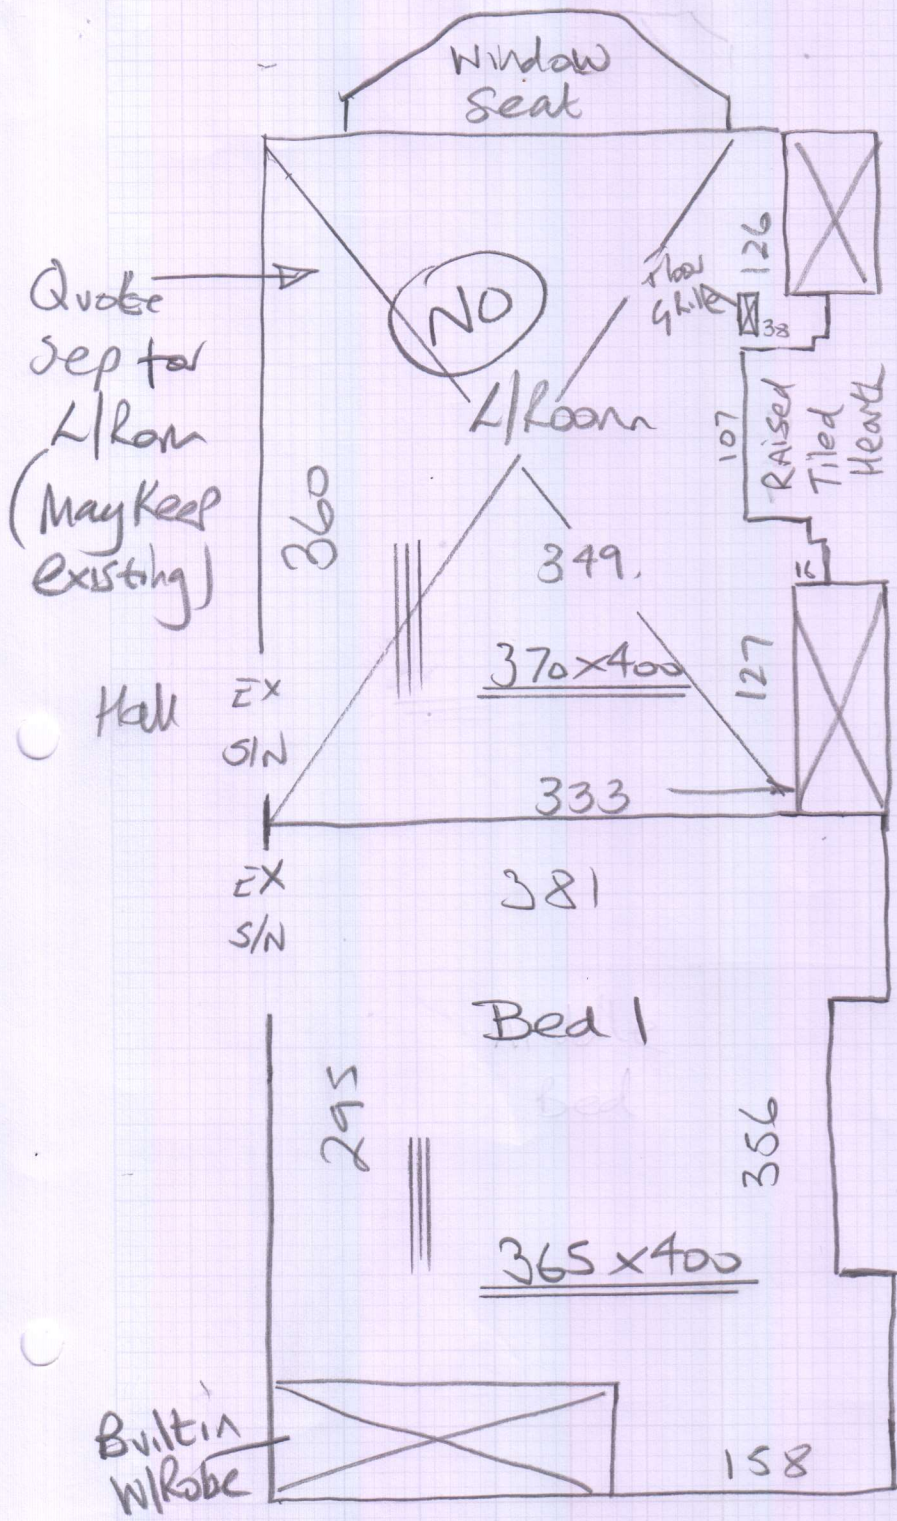 Window
Seat
Quote
Sep for
L/Room
(May Keep
existing)
NO
Floor
Grille
126
38
L/Room
107
Raised
Tiled
Hearth
360
349
16
370x400
127
Hall
EX
S/N
333
EX
S/N
381
Bed 1
295
356
365x400
Built in
W/Robe
158